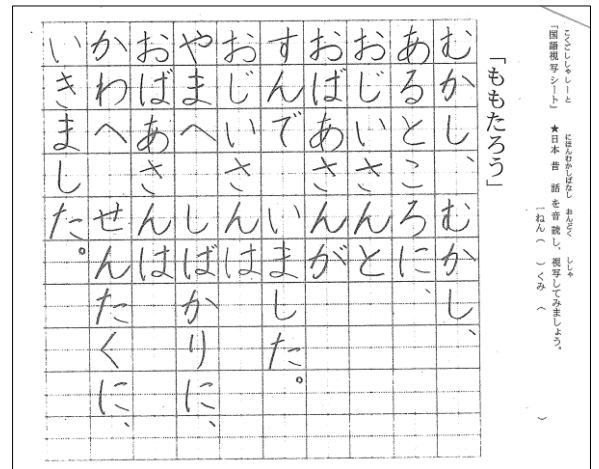 こくごししゃしーと　にほんむかしばなし　おんどく　ししゃ
「国語視写シート」　★日本　昔　話　を音　読し、視写してみましょう。
一ねん（　）くみ（　　　）
「ももたろう」
むかし、むかし、
あるところに、
おじいさんと
おばあさんが
すんで　いました。
おじいさんは
やまへ　しばかりに、
おばあさんは
かわへ　せんたくに、
いきました。